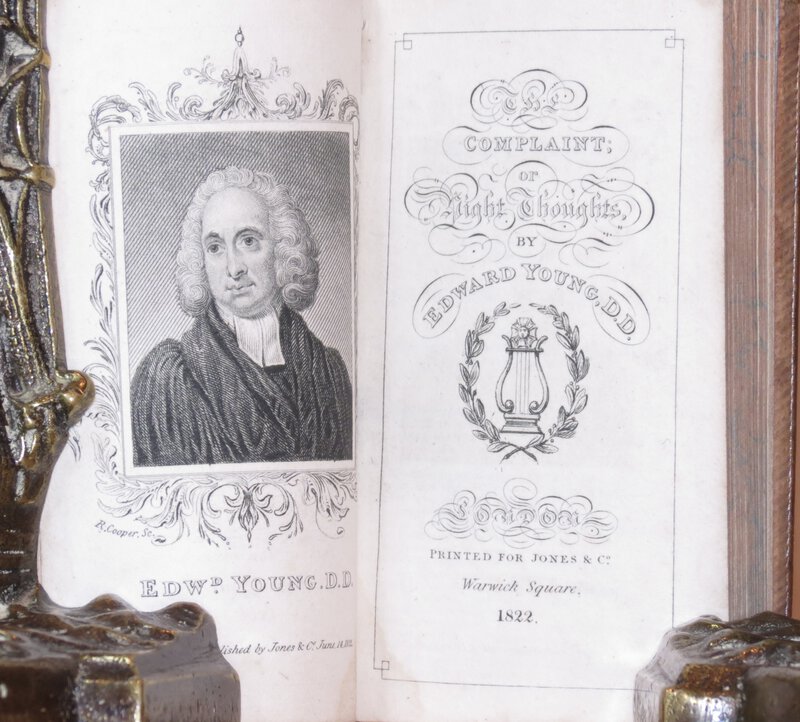 R. Cooper, Sc.
EDWD. YOUNG. D.D.
lished by Jones & Co. June
THE
COMPLAINT;
or
Night Thoughts,
BY
EDWARD YOUNG, D.D.
LONDON
PRINTED FOR JONES & Co.
Warwick Square.
1822.